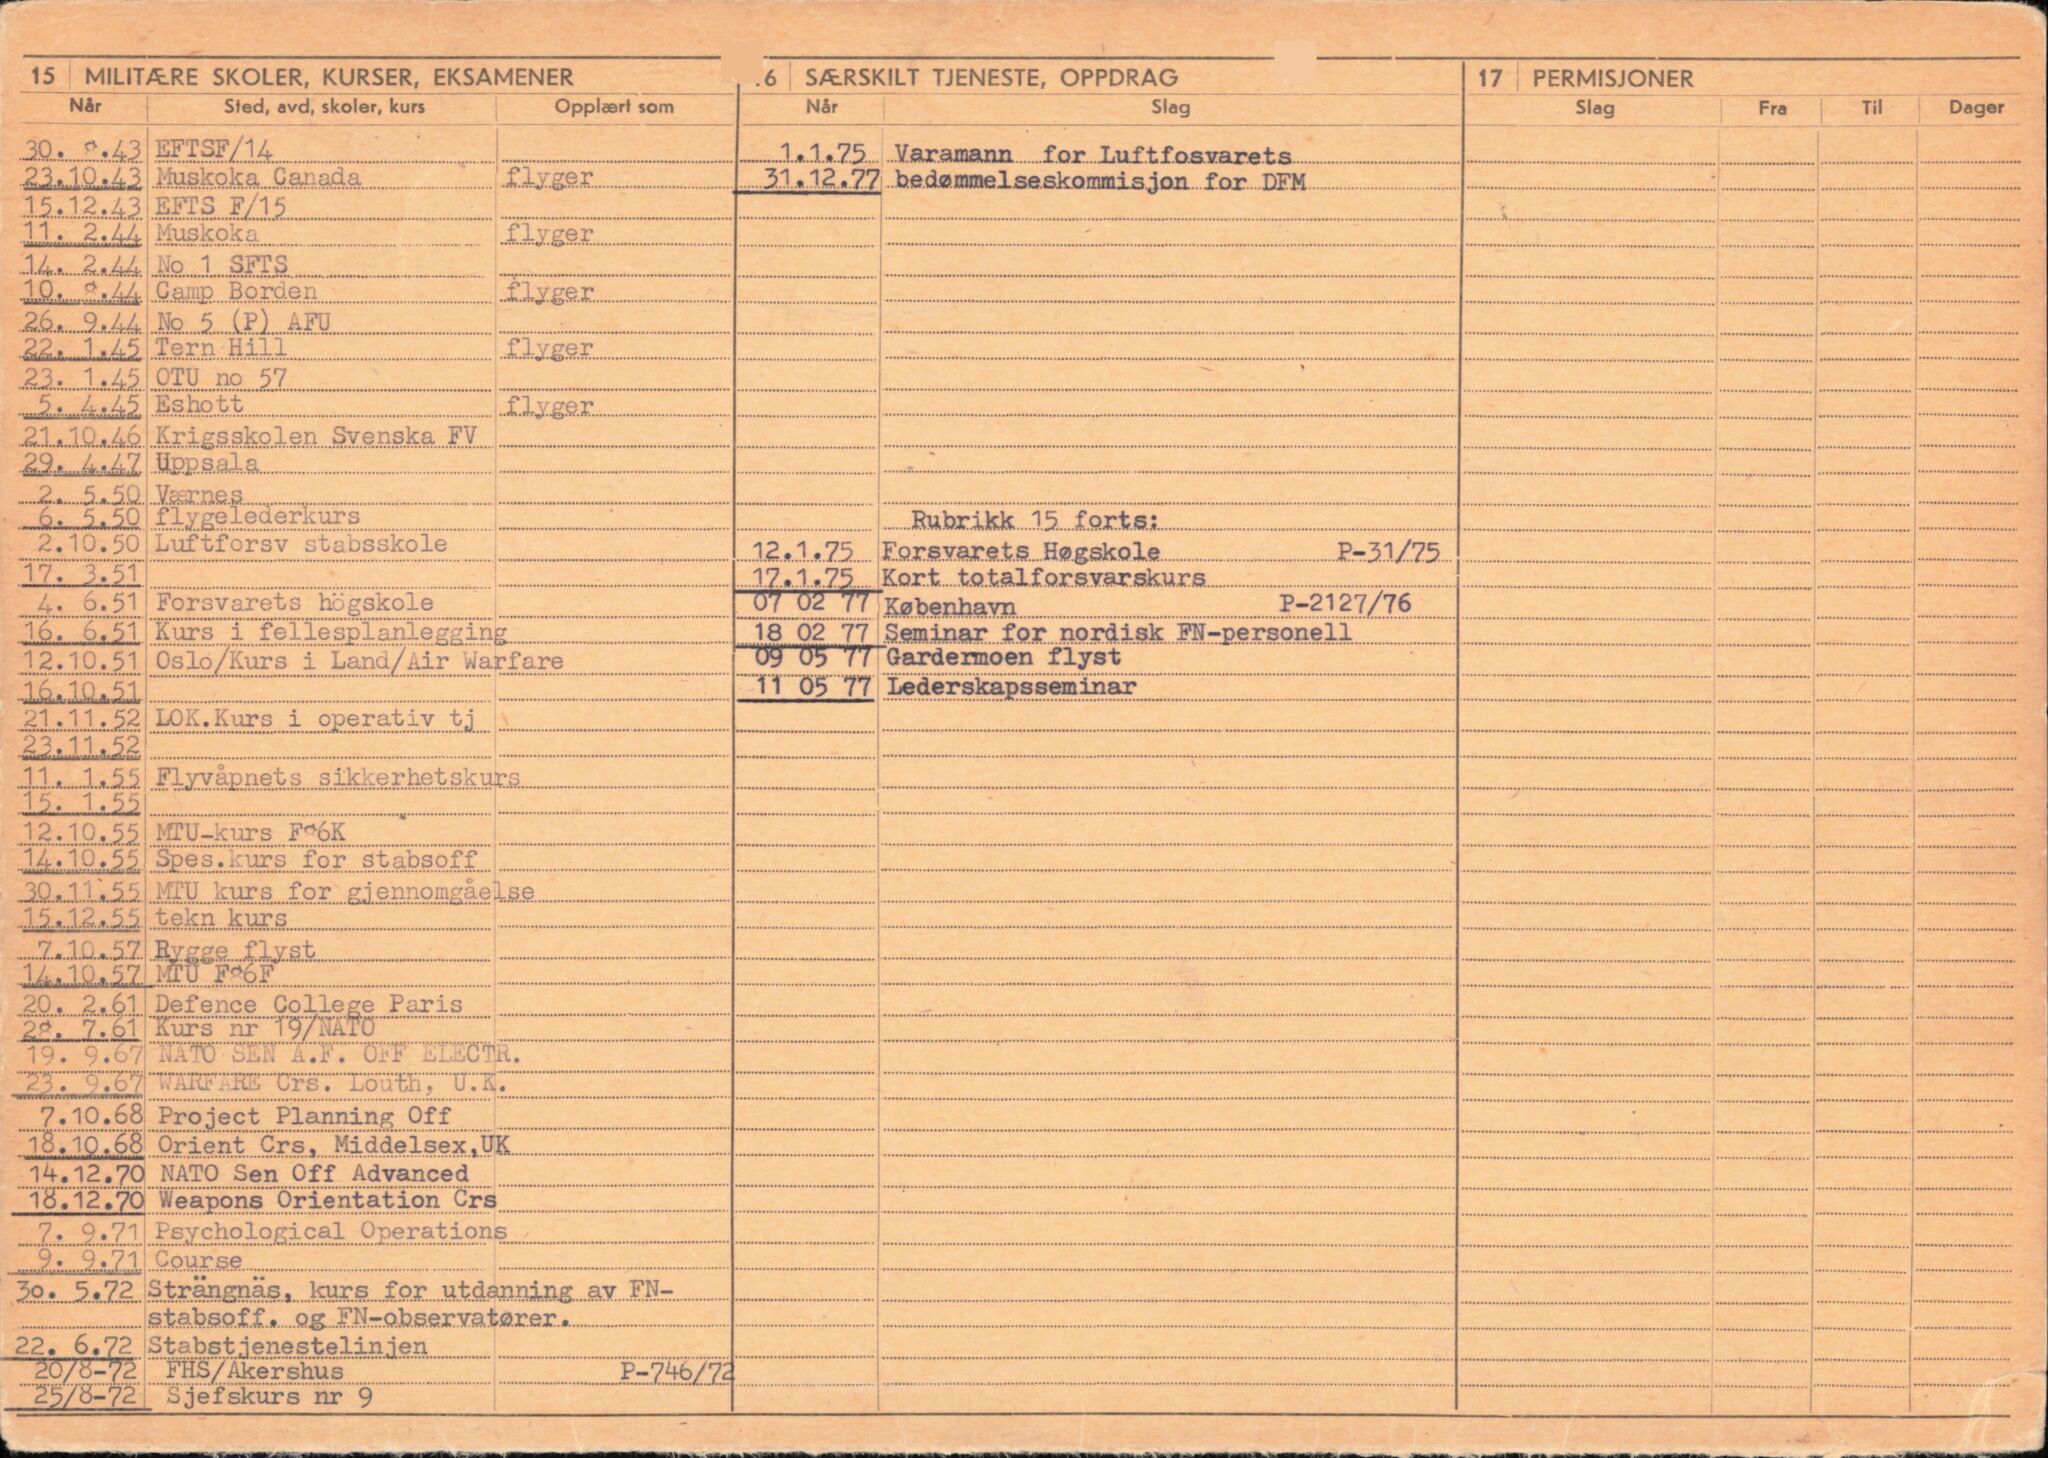 15 MILITÆRE SKOLER, KURSER, EKSAMENER
Når Sted, avd, skoler, kurs Opplært som
30. 8.43 EFTSF/14
23.10.43 Muskoka Canada flyger
15.12.43 EFTS F/15
11. 2.44 Muskoka flyger
14. 2.44 No 1 SFTS
10. 8.44 Camp Borden flyger
26. 9.44 No 5 (P) AFU
22. 1.45 Tern Hill flyger
23. 1.45 OTU no 57
5. 4.45 Eshott flyger
21.10.46 Krigsskolen Svenska FV
29. 4.47 Uppsala
2. 5.50 Værnes
6. 5.50 flygelederkurs
2.10.50 Luftforsv stabsskole
17. 3.51
4. 6.51 Forsvarets högskole
16. 6.51 Kurs i fellesplanlegging
12.10.51 Oslo/Kurs i Land/Air Warfare
16.10.51
21.11.52 LOK.Kurs i operativ tj
23.11.52
11. 1.55 Flyvåpnets sikkerhetskurs
15. 1.55
12.10.55 MTU-kurs F86K
14.10.55 Spes.kurs for stabsoff
30.11.55 MTU kurs for gjennomgåelse
15.12.55 tekn kurs
7.10.57 Rygge flyst
14.10.57 MTU F86F
20. 2.61 Defence College Paris
28. 7.61 Kurs nr 19/NATO
19. 9.67 NATO SEN A.F. OFF ELECTR.
23. 9.67 WARFARE Crs. Louth, U.K.
7.10.68 Project Planning Off
18.10.68 Orient Crs, Middelsex,UK
14.12.70 NATO Sen Off Advanced
18.12.70 Weapons Orientation Crs
7. 9.71 Psychological Operations
9. 9.71 Course
30. 5.72 Strängnäs, kurs for utdanning av FN-
stabsoff. og FN-observatører.
22. 6.72 Stabstjenestelinjen
20/8-72 FHS/Akershus P-746/72
25/8-72 Sjefskurs nr 9
.6 SÆRSKILT TJENESTE, OPPDRAG
Når Slag
1.1.75 Varamann for Luftfosvarets
31.12.77 bedømmelseskommisjon for DFM
Rubrikk 15 forts:
12.1.75 Forsvarets Høgskole P-31/75
17.1.75 Kort totalforsvarskurs
07 02 77 København P-2127/76
18 02 77 Seminar for nordisk FN-personell
09 05 77 Gardermoen flyst
11 05 77 Lederskapsseminar
17 PERMISJONER
Slag Fra Til Dager